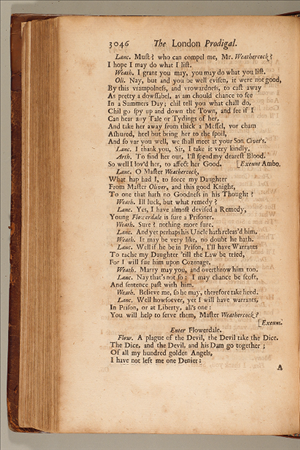 3046 The London Prodigal.
Lanc. Must I who can compel me, Mr. Weathercock?
I hope I may do what I list.
Weath. I grant you may, you may do what you list.
Oli. Nay, but and you be well evisen, it were not good,
By this vrampolness, and vrowardness, to cast away
As pretty a dowssabel, as am should chance to see
In a Summers Day; chil tell you what chall do,
Chil go spy up and down the Town, and see if I
Can hear any Tale or Tydings of her,
And take her away from thick a Messel, vor cham
Assured, heel but bring her to the spoil,
And so var you well, we shall meet at your Son Civer's.
Lanc. I thank you, Sir, I take it very kindly.
Arth. To find her out, I'll spend my dearest Blood.
So well I lov'd her, to affect her Good. [Exeunt Ambo.
Lanc. O Master Weathercock,
What hap had I, to force my Daughter
From Master Oliver, and this good Knight,
To one that hath no Goodness in his Thought?
Weath. Ill luck, but what remedy?
Lanc. Yes, I have almost devised a Remedy,
Young Flowerdale is sure a Prisoner.
Weath. Sure? nothing more sure.
Lanc. And yet perhaps his Uncle hath releas'd him.
Weath. It may be very like, no doubt he hath.
Lanc. Well if he be in Prison, I'll have Warrants
To tache my Daughter 'till the Law be tried,
For I will sue him upon Cozenage.
Weath. Marry may you, and overthrow him too.
Lanc. Nay that's not so; I may chance be scoft,
And sentence past with him.
Weath. Believe me, so he may, therefore take heed.
Lanc. Well howsoever, yet I will have warrants,
In Prison, or at Liberty, all's one:
You will help to serve them, Master Weathercock?
[Exeunt.
Enter Flowerdale.
Flow. A plague of the Devil, the Devil take the Dice.
The Dice, and the Devil, and his Dam go together;
Of all my hundred golden Angels,
I have not left me one Denier:
A